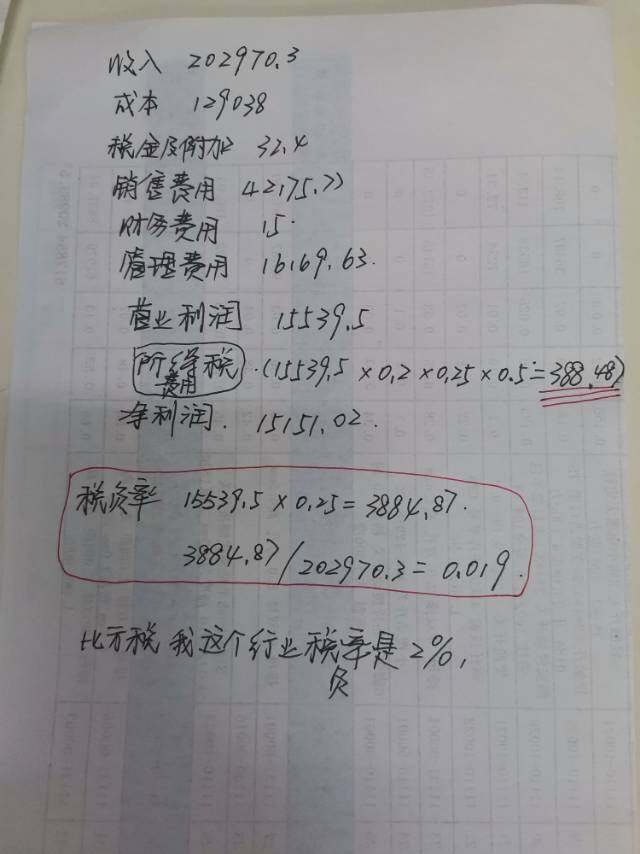 收入 202970.3
成本 129038
税金及附加 32.4
销售费用 42175.77
财务费用 15.
管理费用 16169.63.
营业利润 15539.5
所得税费用 .(15539.5 × 0.2 × 0.25 × 0.5 = 388.48)
净利润. 15151.02.
税负率 15539.5 × 0.25 = 3884.87.
3884.87 / 202970.3 = 0.019.
比方税 我这个行业税负率是 2%,